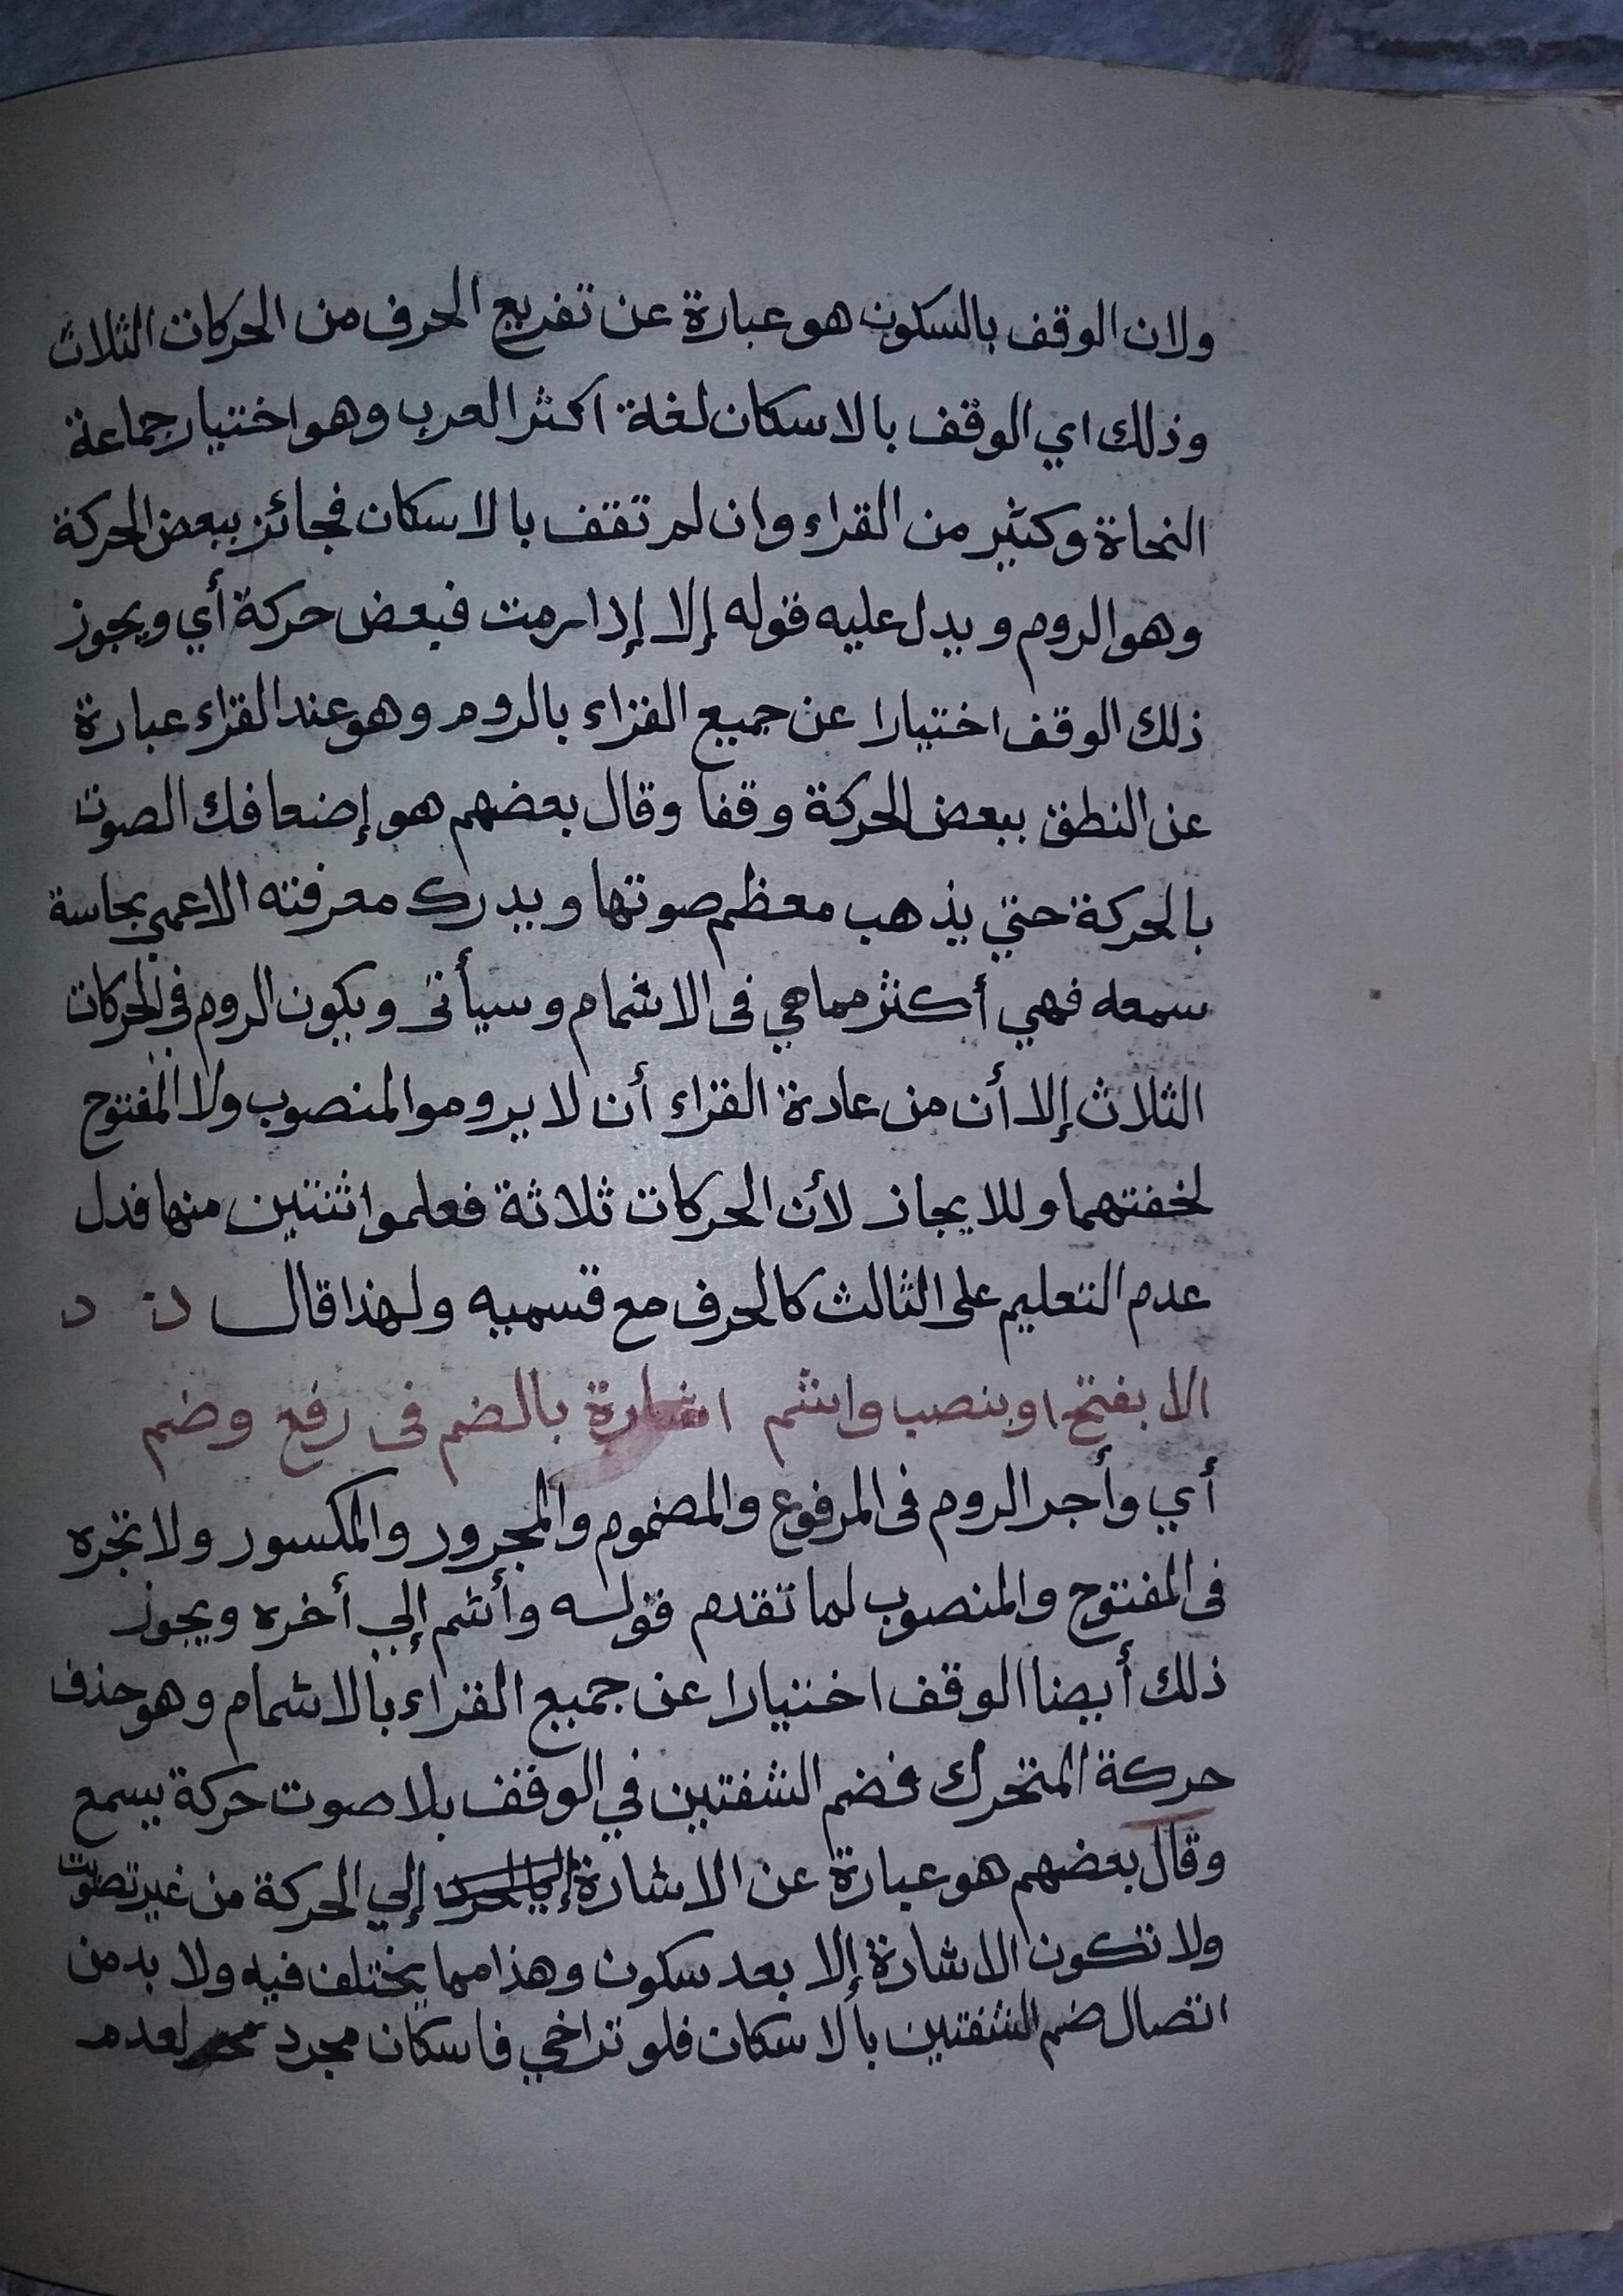 ولان الوقف بالسكون هو عبارة عن تفريع الحرف من الحركات الثلاث
وذلك اي الوقف بالاسكان لغة اكثر العرب وهو اختيار جماعة
النحاة وكثير من القراء وان لم تقف بالاسكان فجائز ببعض الحركة
وهو الروم ويدل عليه قوله إلا إذا رمت فبعض حركة أي ويجوز
ذلك الوقف اختيارا عن جميع القراء بالروم وهو عند القراء عبارة
عن النطق ببعض الحركة وقفا وقال بعضهم هو إضعافك الصوت
بالحركة حتي يذهب معظم صوتها ويدرك معرفته الاعمي بحاسة
سمعه فهي أكثر مما هي في الاشمام وسيأتى ويكون الروم في الحركات
الثلاث إلا أن من عادة القراء أن لا يروموا المنصوب ولا المفتوح
لخفتهما وللايجاز لأن الحركات ثلاثة فعلموا اثنتين منها فدل
عدم التعليم على الثالث كالحرف مع قسميه ولهذا قال
الا بفتح او بنصب واشم اشارة بالضم فى رفع وضم
أي وأجر الروم فى المرفوع والمضموم والمجرور والمكسور ولا تجره
فى المفتوح والمنصوب لما تقدم قوله وأشم إلي أخره ويجوز
ذلك أيضا الوقف اختيارا عن جميع القراء بالاشمام وهو حذف
حركة المتحرك فضم الشفتين في الوقف بلا صوت حركة يسمع
وقال بعضهم هو عبارة عن الاشارة إلي الحركة من غير تصويت
ولا تكون الاشارة إلا بعد سكون وهذا مما يختلف فيه ولا بد من
اتصال ضم الشفتين بالاسكان فلو تراخي فاسكان مجرد لعدم